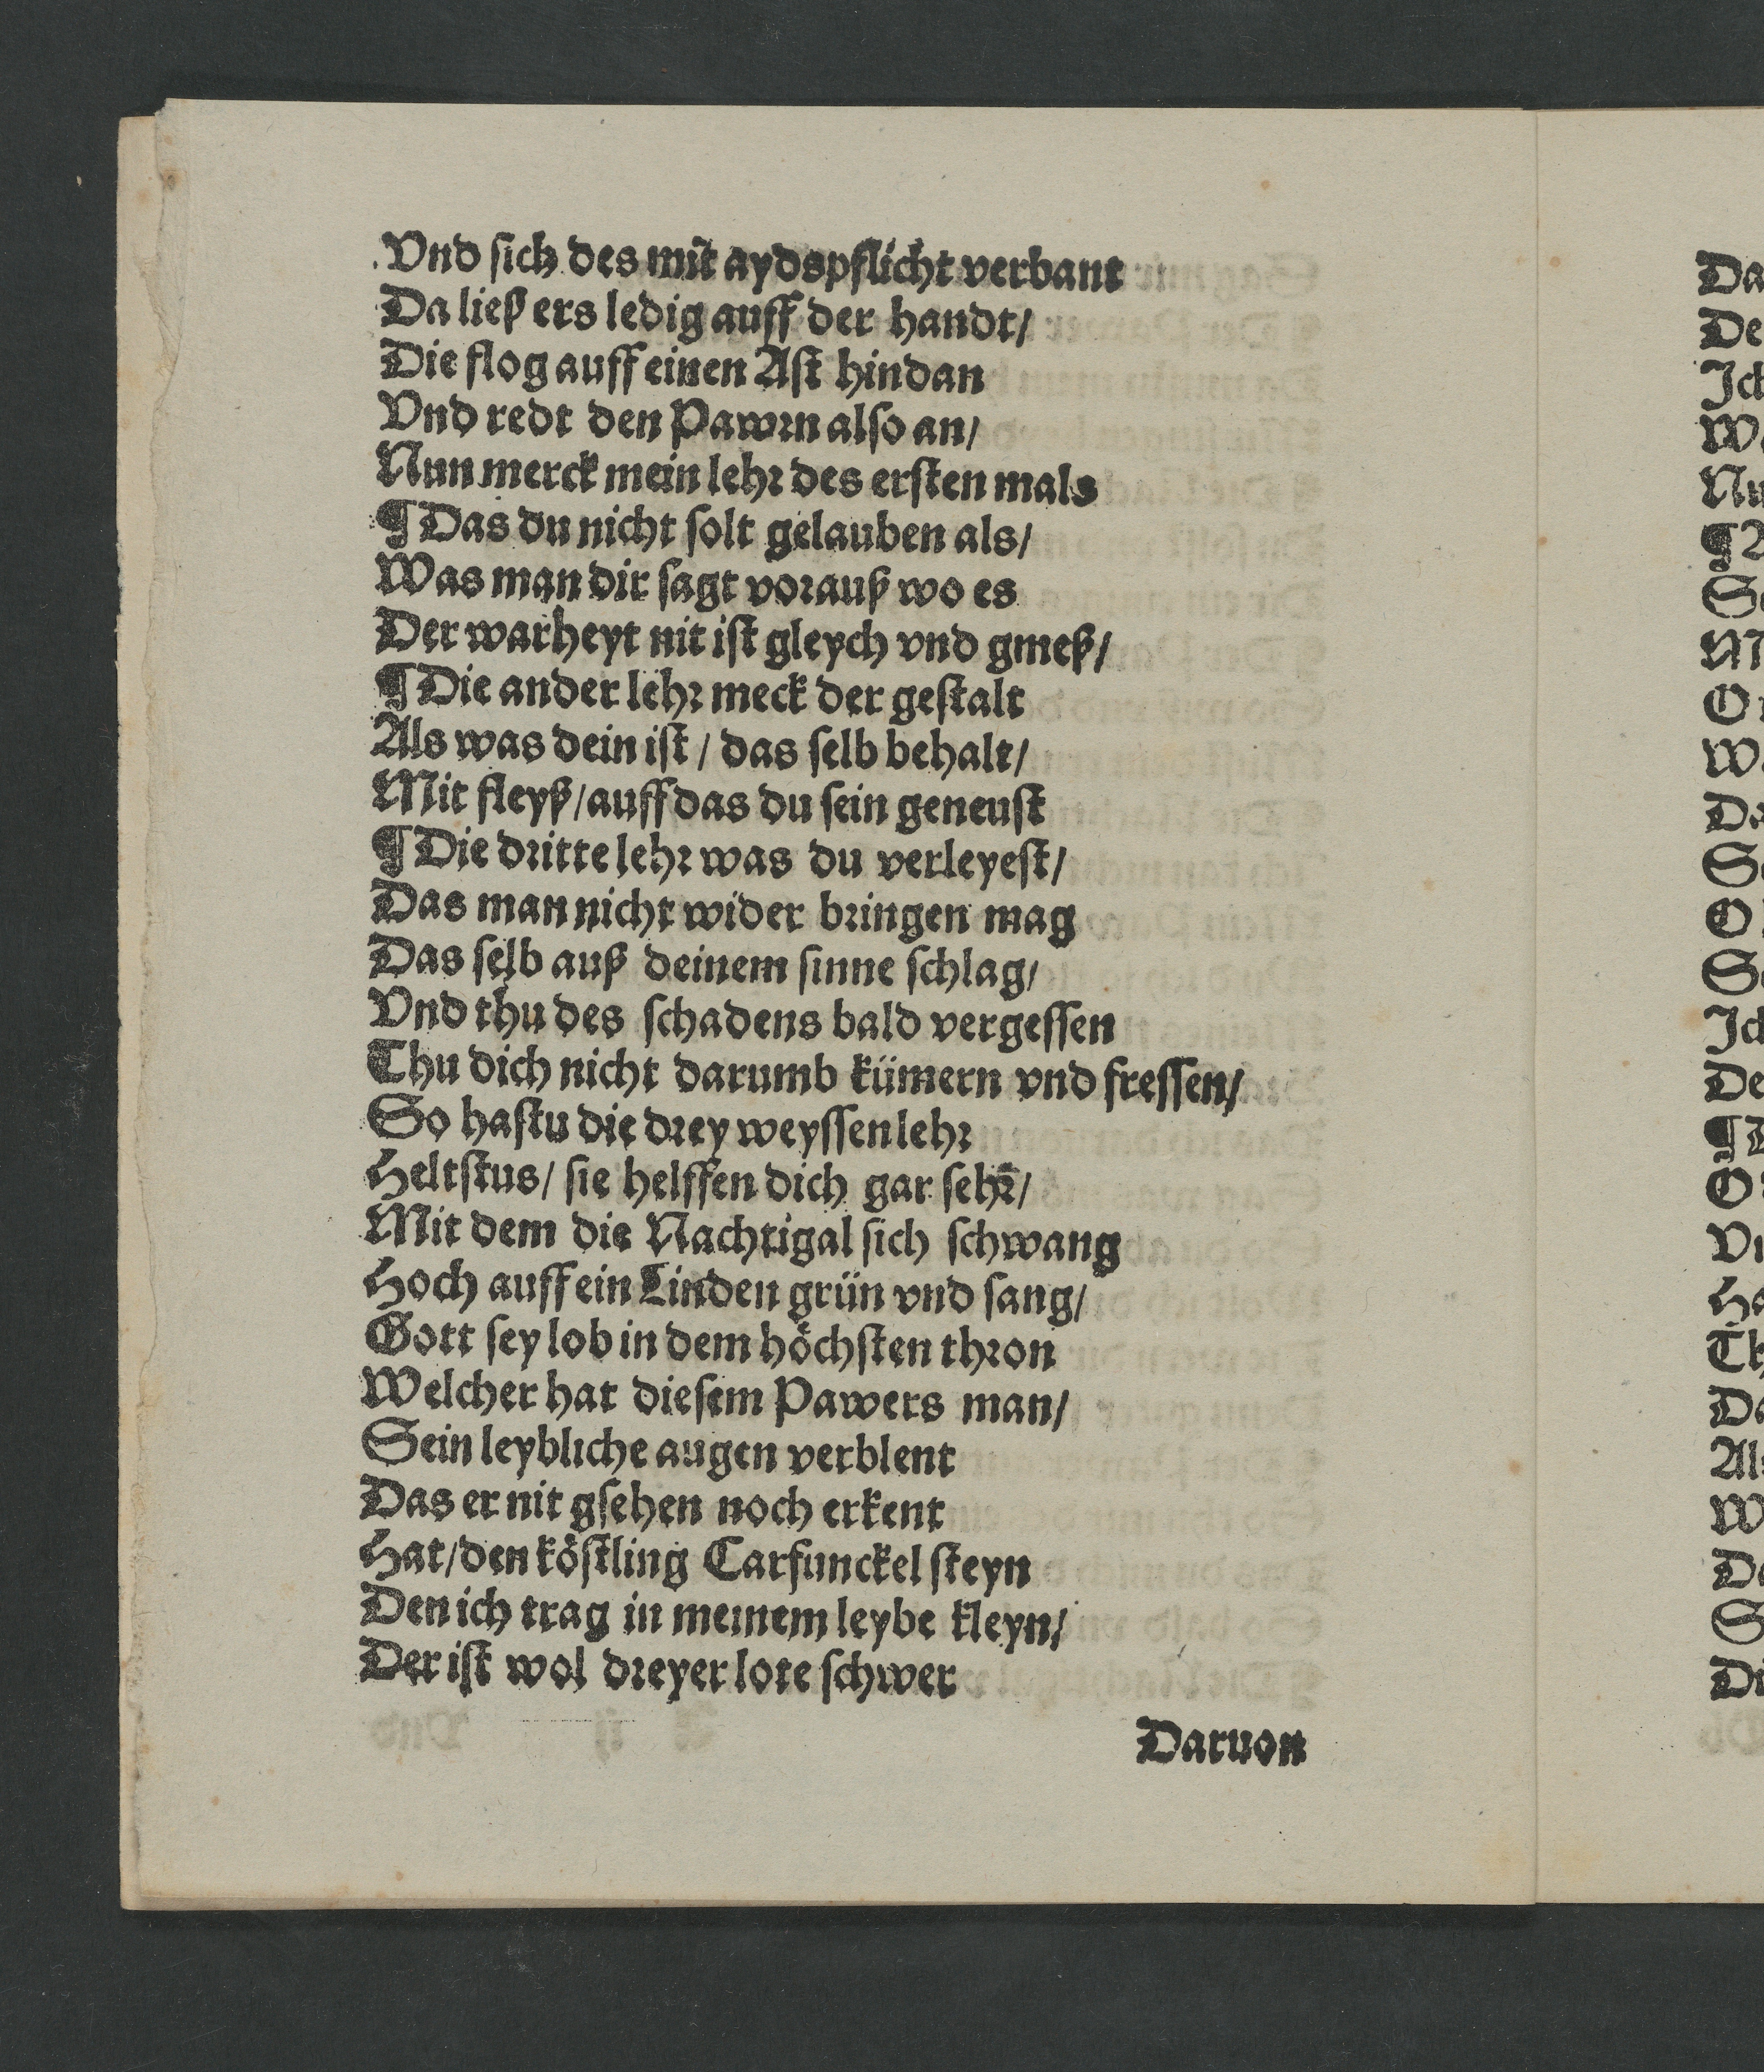 Vnd ſich des mit aydspflicht verbant
Da ließ ers ledig auff der handt/
Die flog auff einen Aſt hindan
Vnd redt den Pawrn alſo an/
Nun merck mein lehr des erſten mals
¶ Das du nicht ſolt gelauben als/
Was man dir ſagt vorauß wo es
Der warheyt nit iſt gleych vnd gmeß/
¶ Die ander lehr meck der geſtalt
Als was dein iſt / das ſelb behalt/
Mit fleyß/ auff das du ſein geneuſt
¶ Die dritte lehr was du verleyeſt/
Das man nicht wider bringen mag
Das ſelb auß deinem ſinne ſchlag/
Vnd thu des ſchadens bald vergeſſen
Thu dich nicht darumb kümern vnd freſſen/
So haſtu die drey weyſſen lehr
Heltſtus/ ſie helffen dich gar ſehr/
Mit dem die Nachtigal ſich ſchwang
Hoch auff ein Linden grün vnd ſang/
Gott ſey lob in dem höchſten thron
Welcher hat dieſem Pawers man/
Sein leybliche augen verblent
Das er nit gſehen noch erkent
Hat/ den köſtling Carfunckel ſteyn
Den ich trag in meinem leybe kleyn/
Der iſt wol dreyer lote ſchwer
Daruon
Da
De
Ich
Wa
Nu
¶
O
Wa
Da
O
Ich
De
¶
O
Ha
Th
Da
Als
W
S